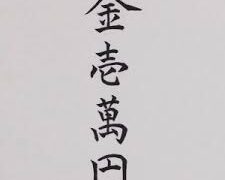 金壱萬円